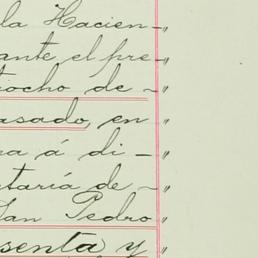 la Hacien-"
ante el pre-"
iocho de-"
asado, en "
na á di-"
taría de-"
San Pedro "
senta y "